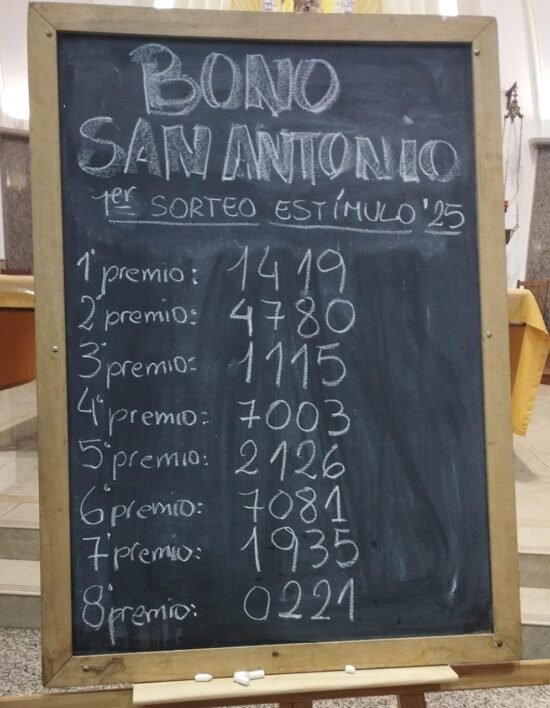 BONO
SAN ANTONIO
1er SORTEO ESTÍMULO '25
1° premio: 1419
2° premio: 4780
3° premio: 1115
4° premio: 7003
5° premio: 2126
6° premio: 7081
7° premio: 1935
8° premio: 0221